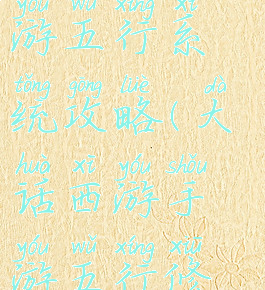 yóu wǔ xíng xì
游五行系
tǒng gōng lüè dà
统攻略(大
huà xī yóu shǒu
话西游手
yóu wǔ xíng xiū
游五行修